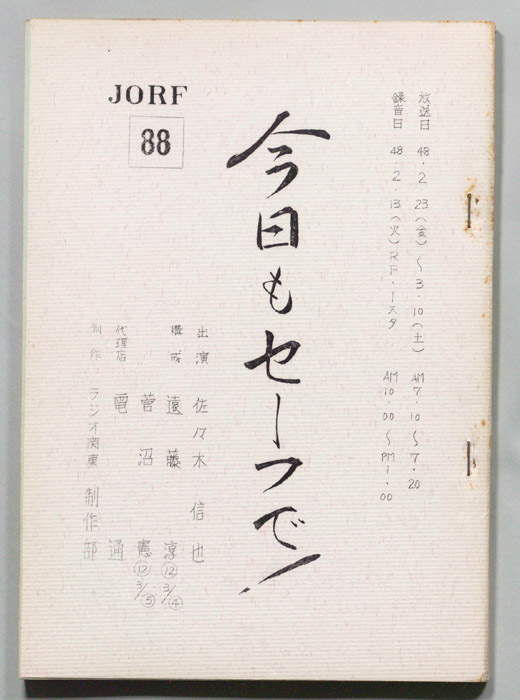 JORF
88
放送日 48.2.23(金)〜3.10(土) AM7.10〜7.20
録音日 48.2.13(火)RF.1スタ AM10.00〜PM1.00
今日もセーフで!
出演 佐々木信也
構成 遠藤淳⑫3/④
菅沼憲⑫3/⑤
代理店 電通
制作 ラジオ関東制作部